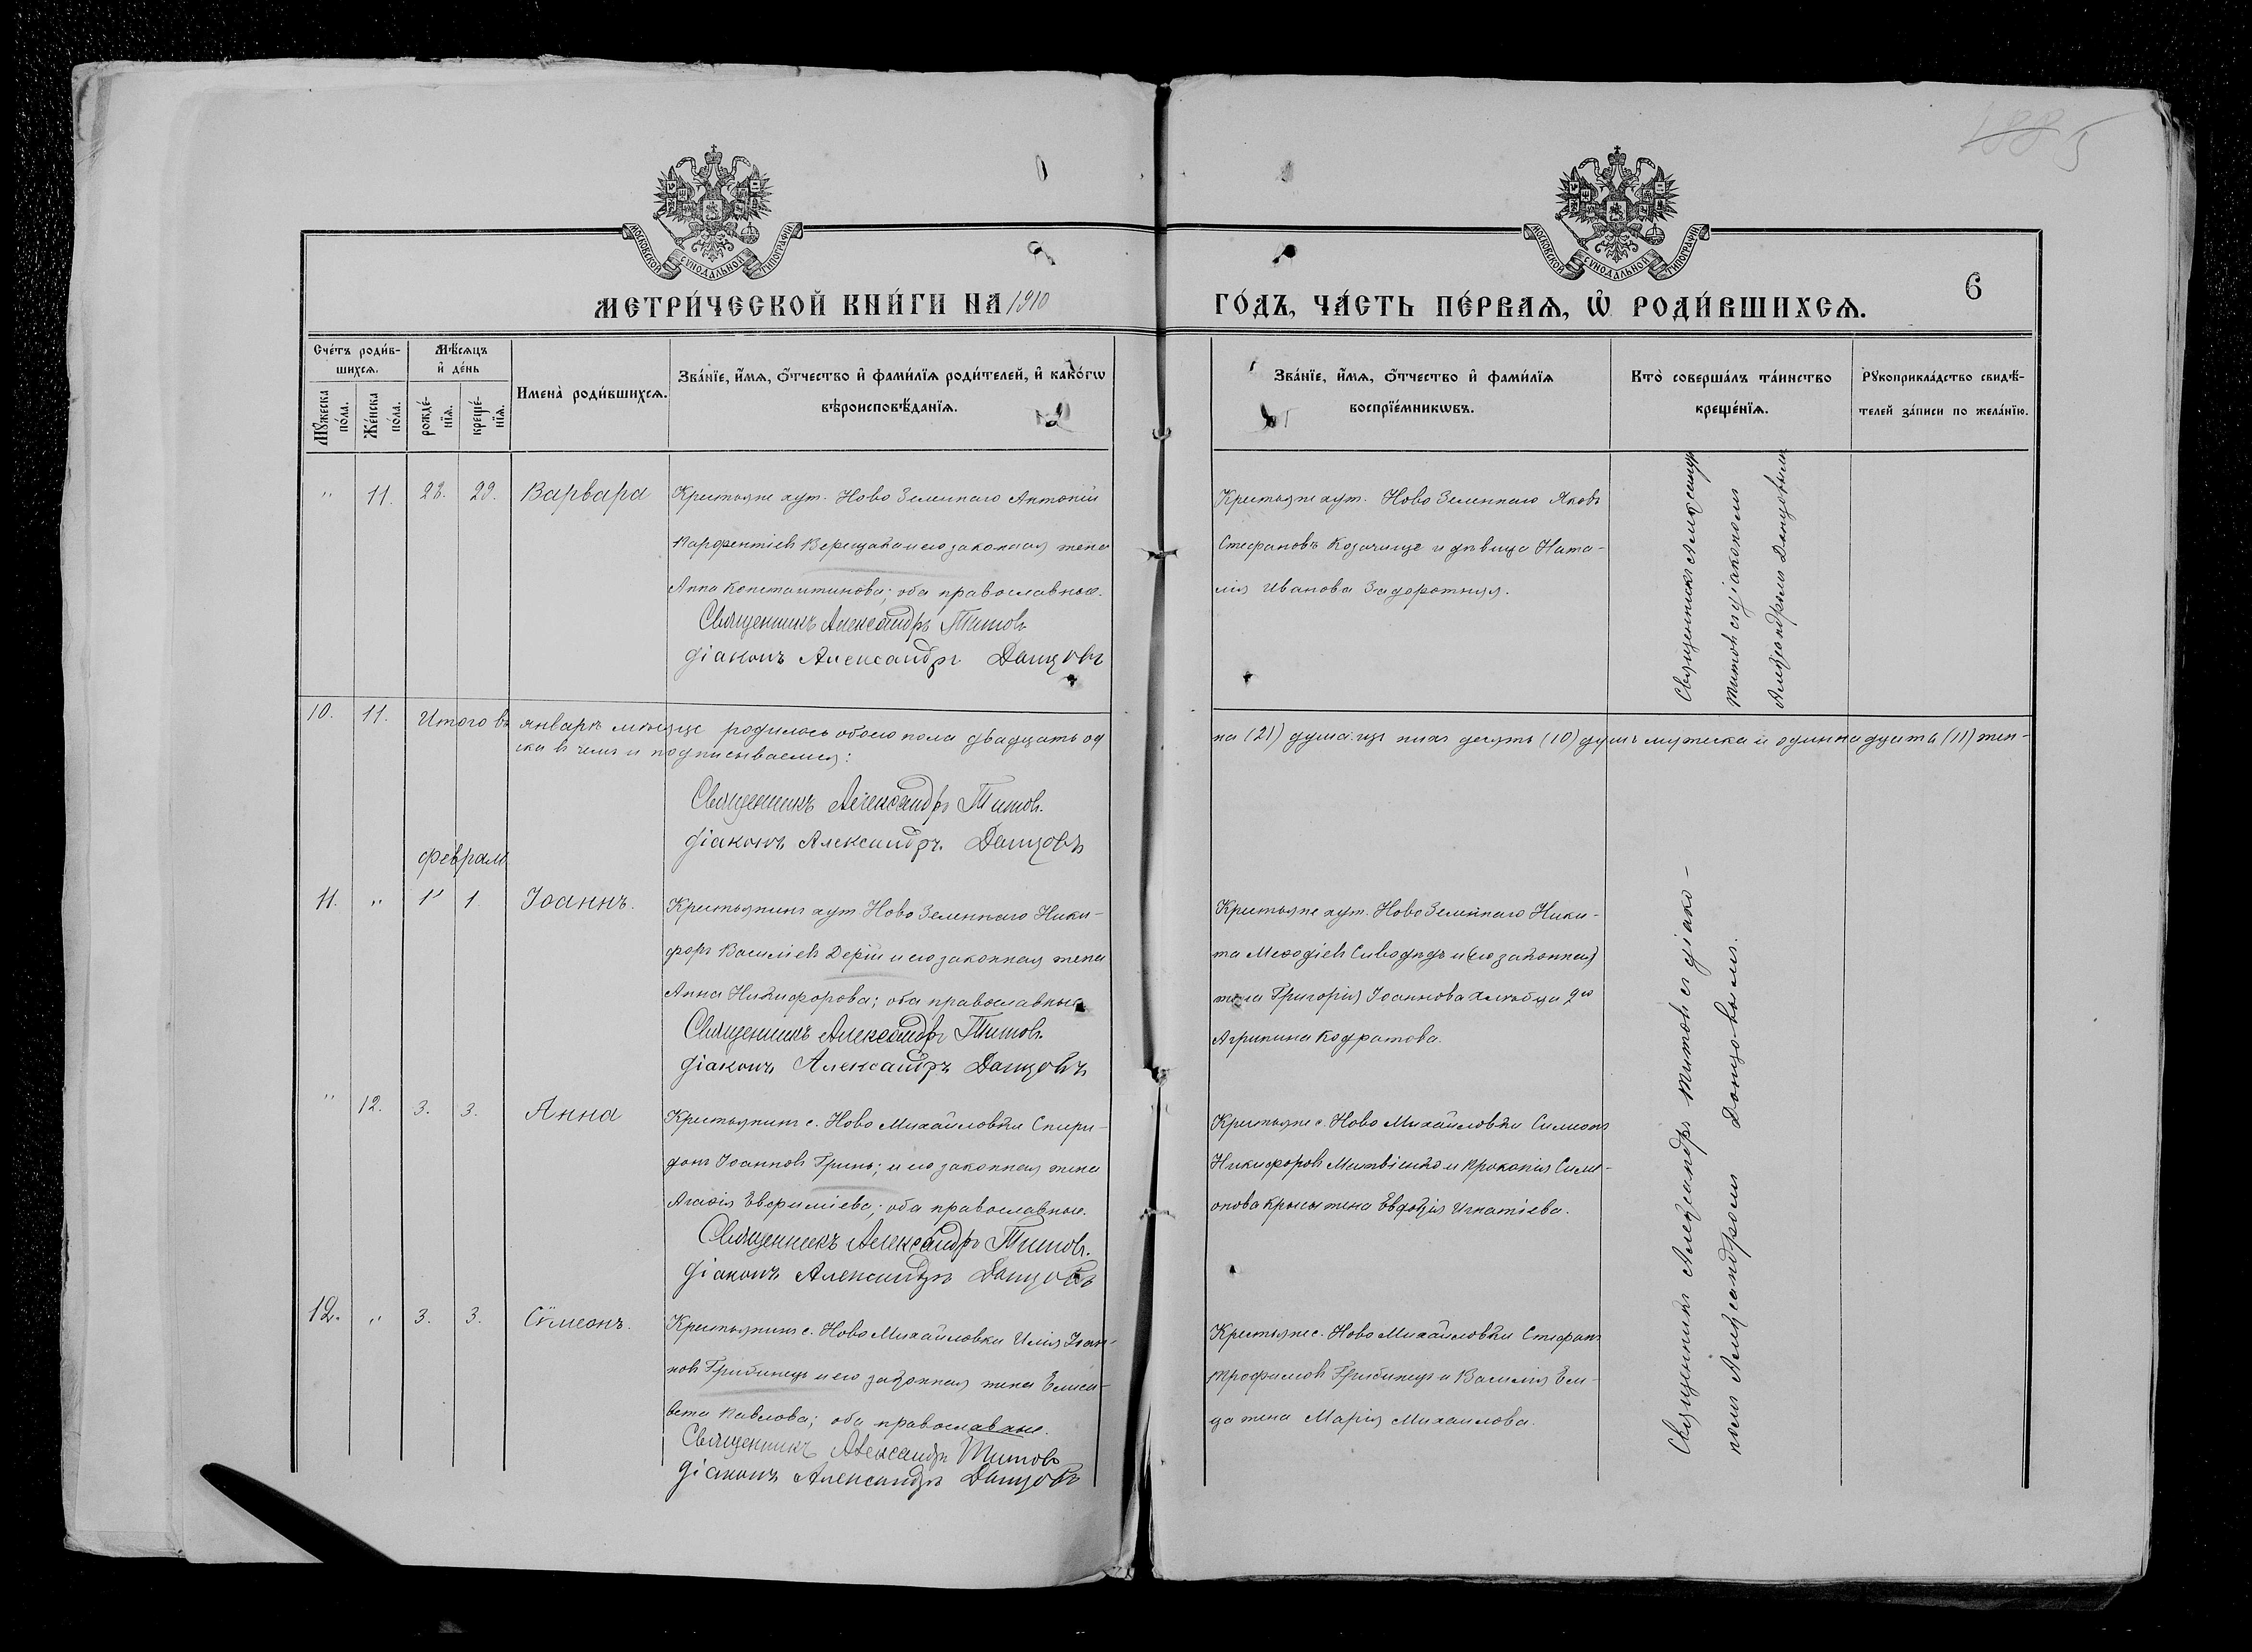 188 5
МОСКОВСКОЙ СѴНОДАЛЬНОЙ ТИПОГРАФІИ
МОСКОВСКОЙ СѴНОДАЛЬНОЙ ТИПОГРАФІИ
МЕТРИ́ЧЕСКОЙ КНИ́ГИ НА 1910
ГО́ДЪ, ЧА́СТЬ ПЕ́РВАѦ, Ѽ РОДИ́ВШИХСѦ.
6
Сче́тъ роди́в-
шихсѧ.
Мꙋ́жеска по́ла.
Же́нска по́ла.
Мѣ́сѧцъ
и҆ де́нь
рожде́-
нїѧ.
креще́-
нїѧ.
Имена̀ роди́вшихсѧ.
Зва́нїе, и҆́мѧ, ѻ҆́тчество и҆ фами́лїѧ роди́телей, и҆ како́гѡ
вѣроисповѣ́данїѧ.
Зва́нїе, и҆́мѧ, ѻ҆́тчество и҆ фами́лїѧ
воспрїе́мникѡвъ.
Кто̀ соверша́лъ та́инство
креще́нїѧ.
Рꙋкоприкла́дство свидѣ́-
телей за́писи по жела́нїю.
" 11. 28. 29. Варвара
Крестьяне хут. Ново Зеленнаго Антоній
Парфентіевъ Верещака и его законная жена
Анна Константинова; оба православные.
Священникъ Александръ Титовъ
діаконъ Александръ Данцовъ
Крестьяне хут. Ново Зеленнаго Яковъ
Стефановъ Козачище и дѣвица Ната-
лія Иванова Задорожняя.
Священникъ Александръ
Титовъ съ діакономъ
Александромъ Данцовымъ
10. 11. Итого въ январѣ мѣсяце родилось обоего пола двадцать од
на (21) душа. изъ нихъ десять (10) душъ мужеска и одиннадцать (11) жен-
ска въ чемъ и подписываемся:
Священникъ Александръ Титовъ.
діаконъ Александръ. Данцовъ
февраль
11. " 1" 1. Іоаннъ.
Крестьянинъ хут Ново Зеленнаго Ники-
форъ Василіевъ Дерій и его законная жена
Анна Никифорова; оба православные
Священникъ Александръ Титовъ.
діаконъ Александръ Данцовъ
Крестьяне хут. Ново Зеленнаго Ники-
та Меѳодіевъ Сиводѣдъ и (его законная)
жена Григорія Іоаннова
Агрипина Кодратова.
" 12. 3. 3. Анна
Крестьянинъ с. Ново Михайловки Спири-
донъ Іоанновъ Гринь; и его законная жена
Агаѳія Евфиміева; оба православные.
Священникъ Александръ Титовъ.
діаконъ Александръ Данцовъ
Крестьяне с. Ново Михайловки Симеонъ
Никифоровъ Матвіенко и Прокопія Симе-
онова Крысы жена Евдокія Игнатіева.
12. " 3. 3. Сѷмеонъ.
Крестьянинъ с. Ново Михайловки Илія Іоан-
новъ Грибинецъ и его законная жена Елиса-
вета Павлова; оба православные.
Священникъ Александръ Титовъ
діаконъ Александръ Данцовъ
Крестьяне с. Ново Михайловки Стефанъ
Трофимовъ Грибинецъ и Василія
жена Марія Михаилова.
Священникъ Александръ Титовъ съ діако-
номъ Александромъ Данцовымъ.